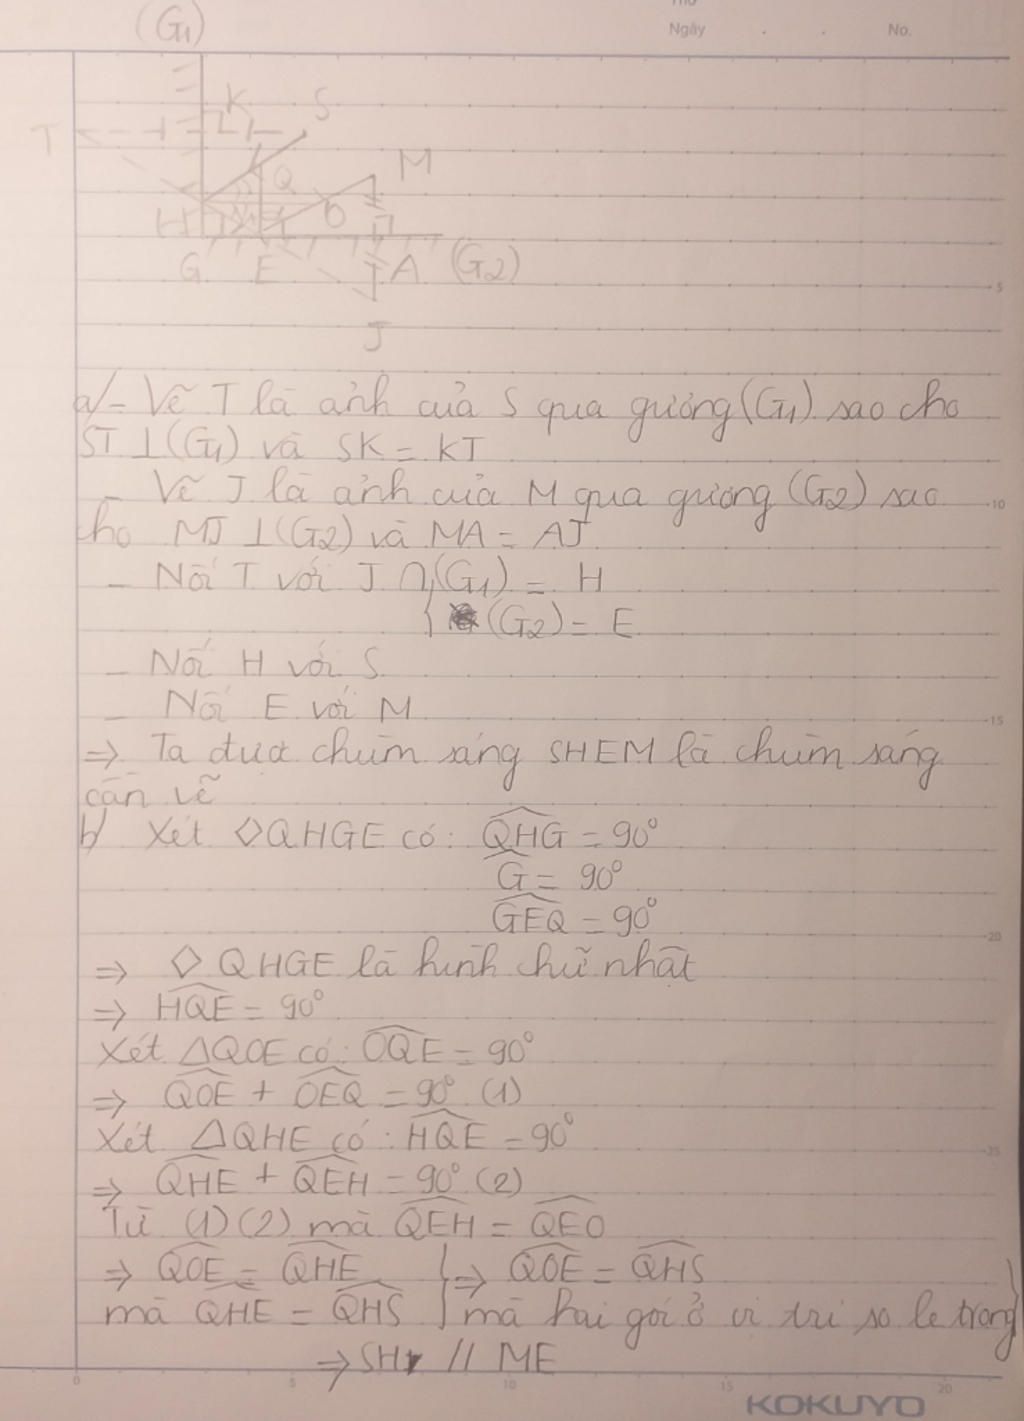 (G1)
Thứ
Ngày . . No.
K S
T M
Q
H O
G E A (G2)
J
a/- Vẽ T là ảnh của S qua gương (G1) sao cho
ST ⊥ (G1) và SK = KT
- Vẽ J là ảnh của M qua gương (G2) sao
cho MJ ⊥ (G2) và MA = AJ
- Nối T với J ∩ (G1) = H
(G2) = E
- Nối H với S
- Nối E với M
=> Ta được chùm sáng SHEM là chùm sáng
cần vẽ
b/ Xét ◇QHGE có: QHG = 90°
G = 90°
GEQ = 90°
=> ◇ QHGE là hình chữ nhật
=> HQE = 90°
Xét ΔQOE có: OQE = 90°
=> QOE + OEQ = 90° (1)
Xét ΔQHE có: HQE = 90°
=> QHE + QEH = 90° (2)
Từ (1)(2) mà QEH = QEO
=> QOE = QHE } => QOE = QHS
mà QHE = QHS } mà hai gói ở vi trí so le trong
=> SH // ME
5
10
15
20
25
0 5 10 15 20
KOKUYO